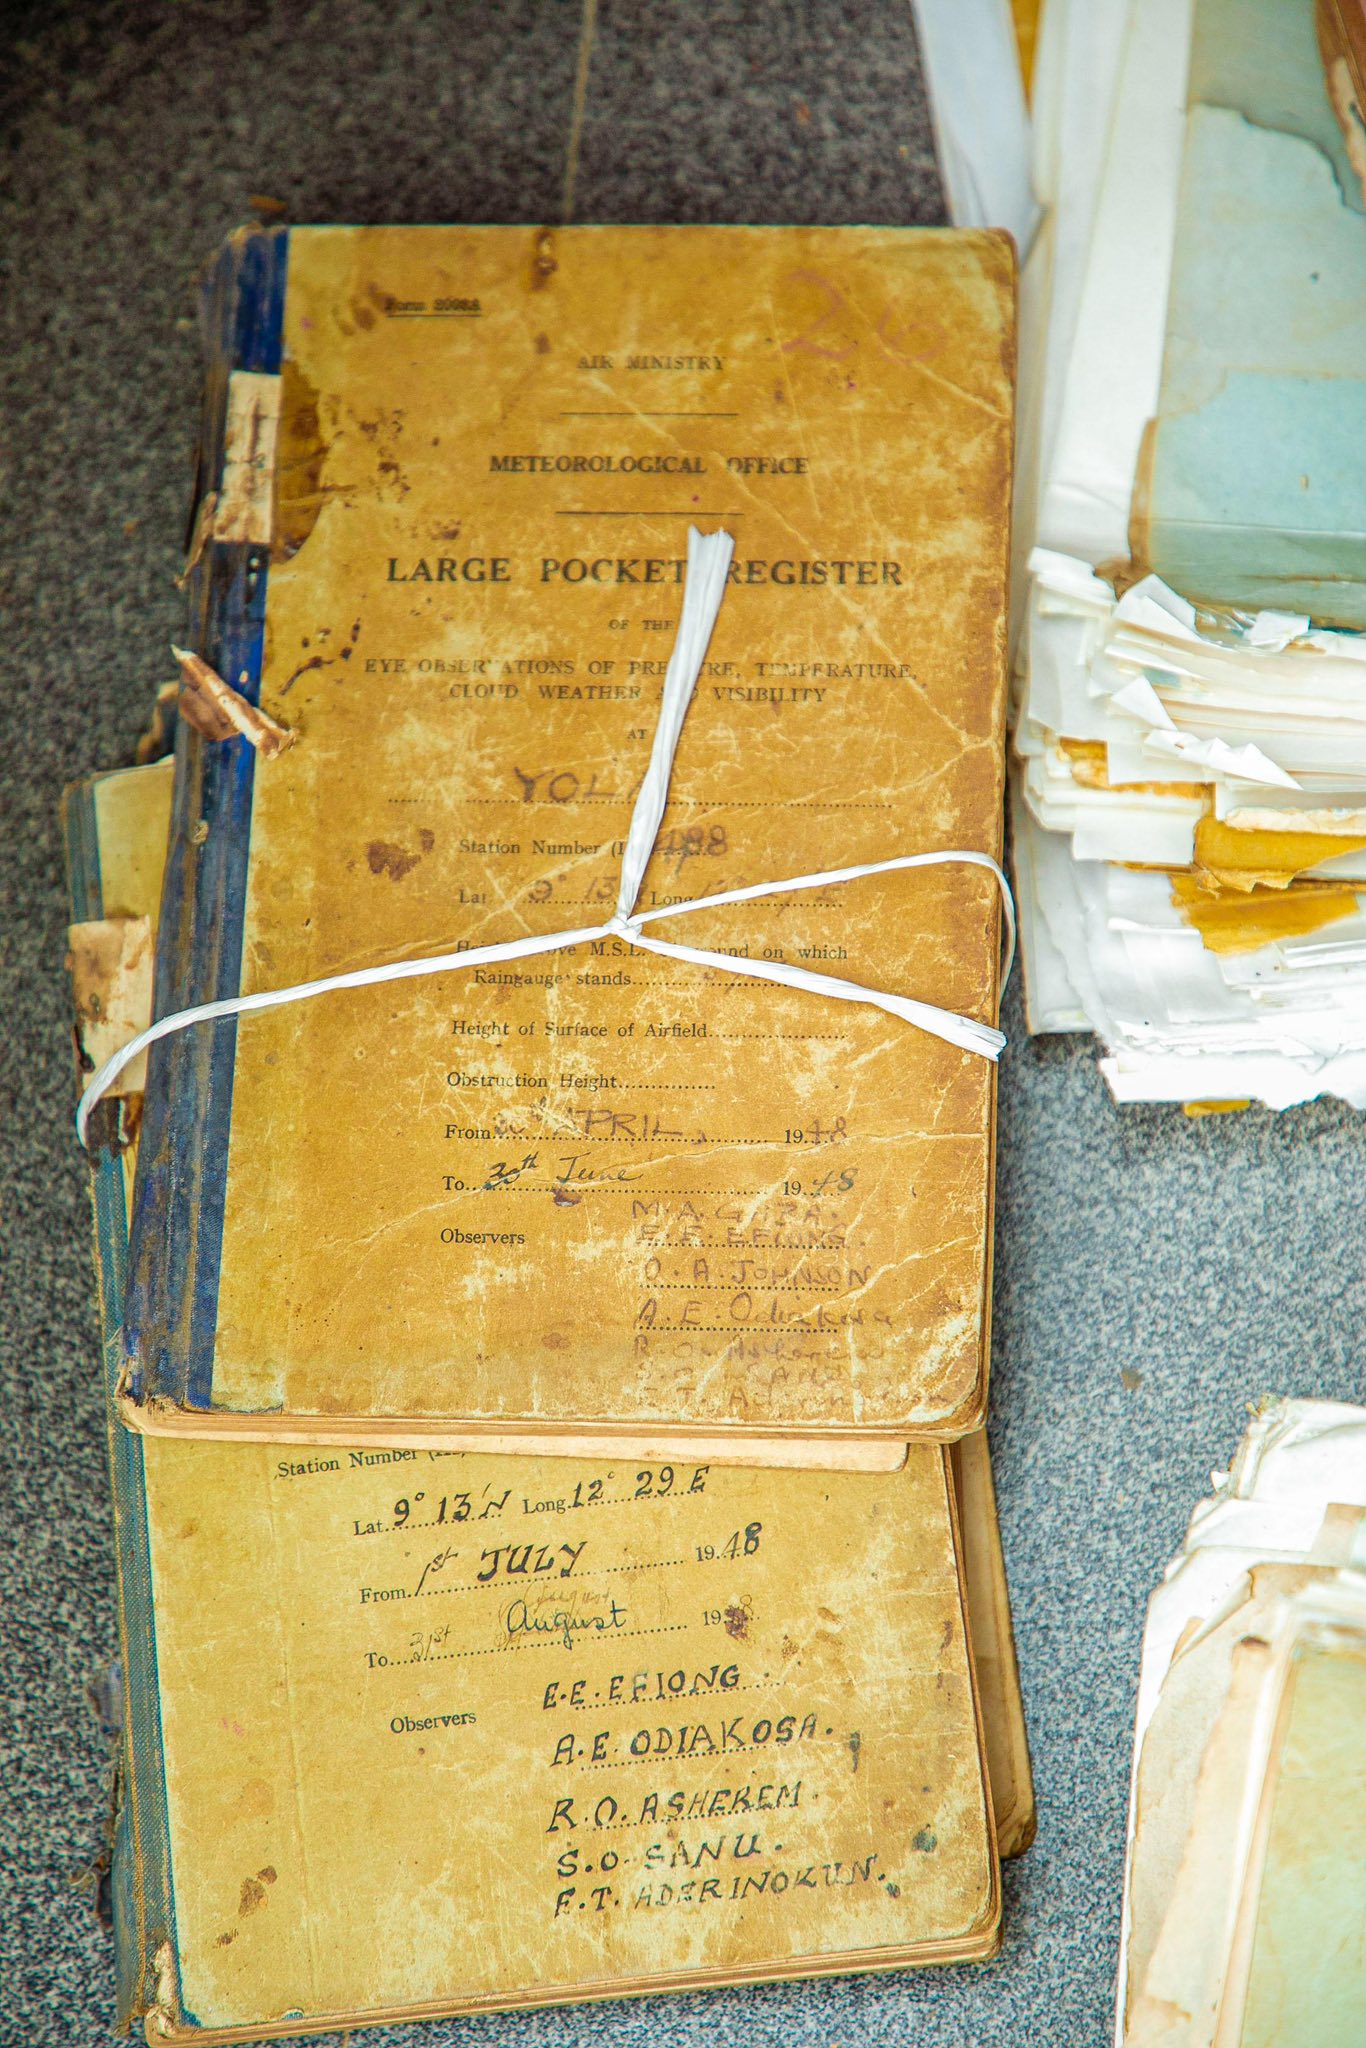 AIR MINISTRY
METEOROLOGICAL OFFICE
LARGE POCKET REGISTER
OF THE
EYE OBSERVATIONS OF TEMPERATURE,
CLOUD WEATHER VISIBILITY
AT
YOLA
Station Number 488
Lat 9° 13 Long
M.S.L. on which
Raingauge stands
Height of Surface of Airfield
Obstruction Height
From APRIL, 1948
To 30th June 1948
Observers
E.E. EFIONG.
O. A. JOHNSON
A. E. Odiakosa
Station Number
Lat 9° 13'N Long 12° 29 E
From 1st JULY 1948
To 31st August 19
Observers
E.E. EFIONG.
A.E ODIAKOSA.
R.O. ASHEREM.
S.O SANU.
F.T. ADERINOKUN.